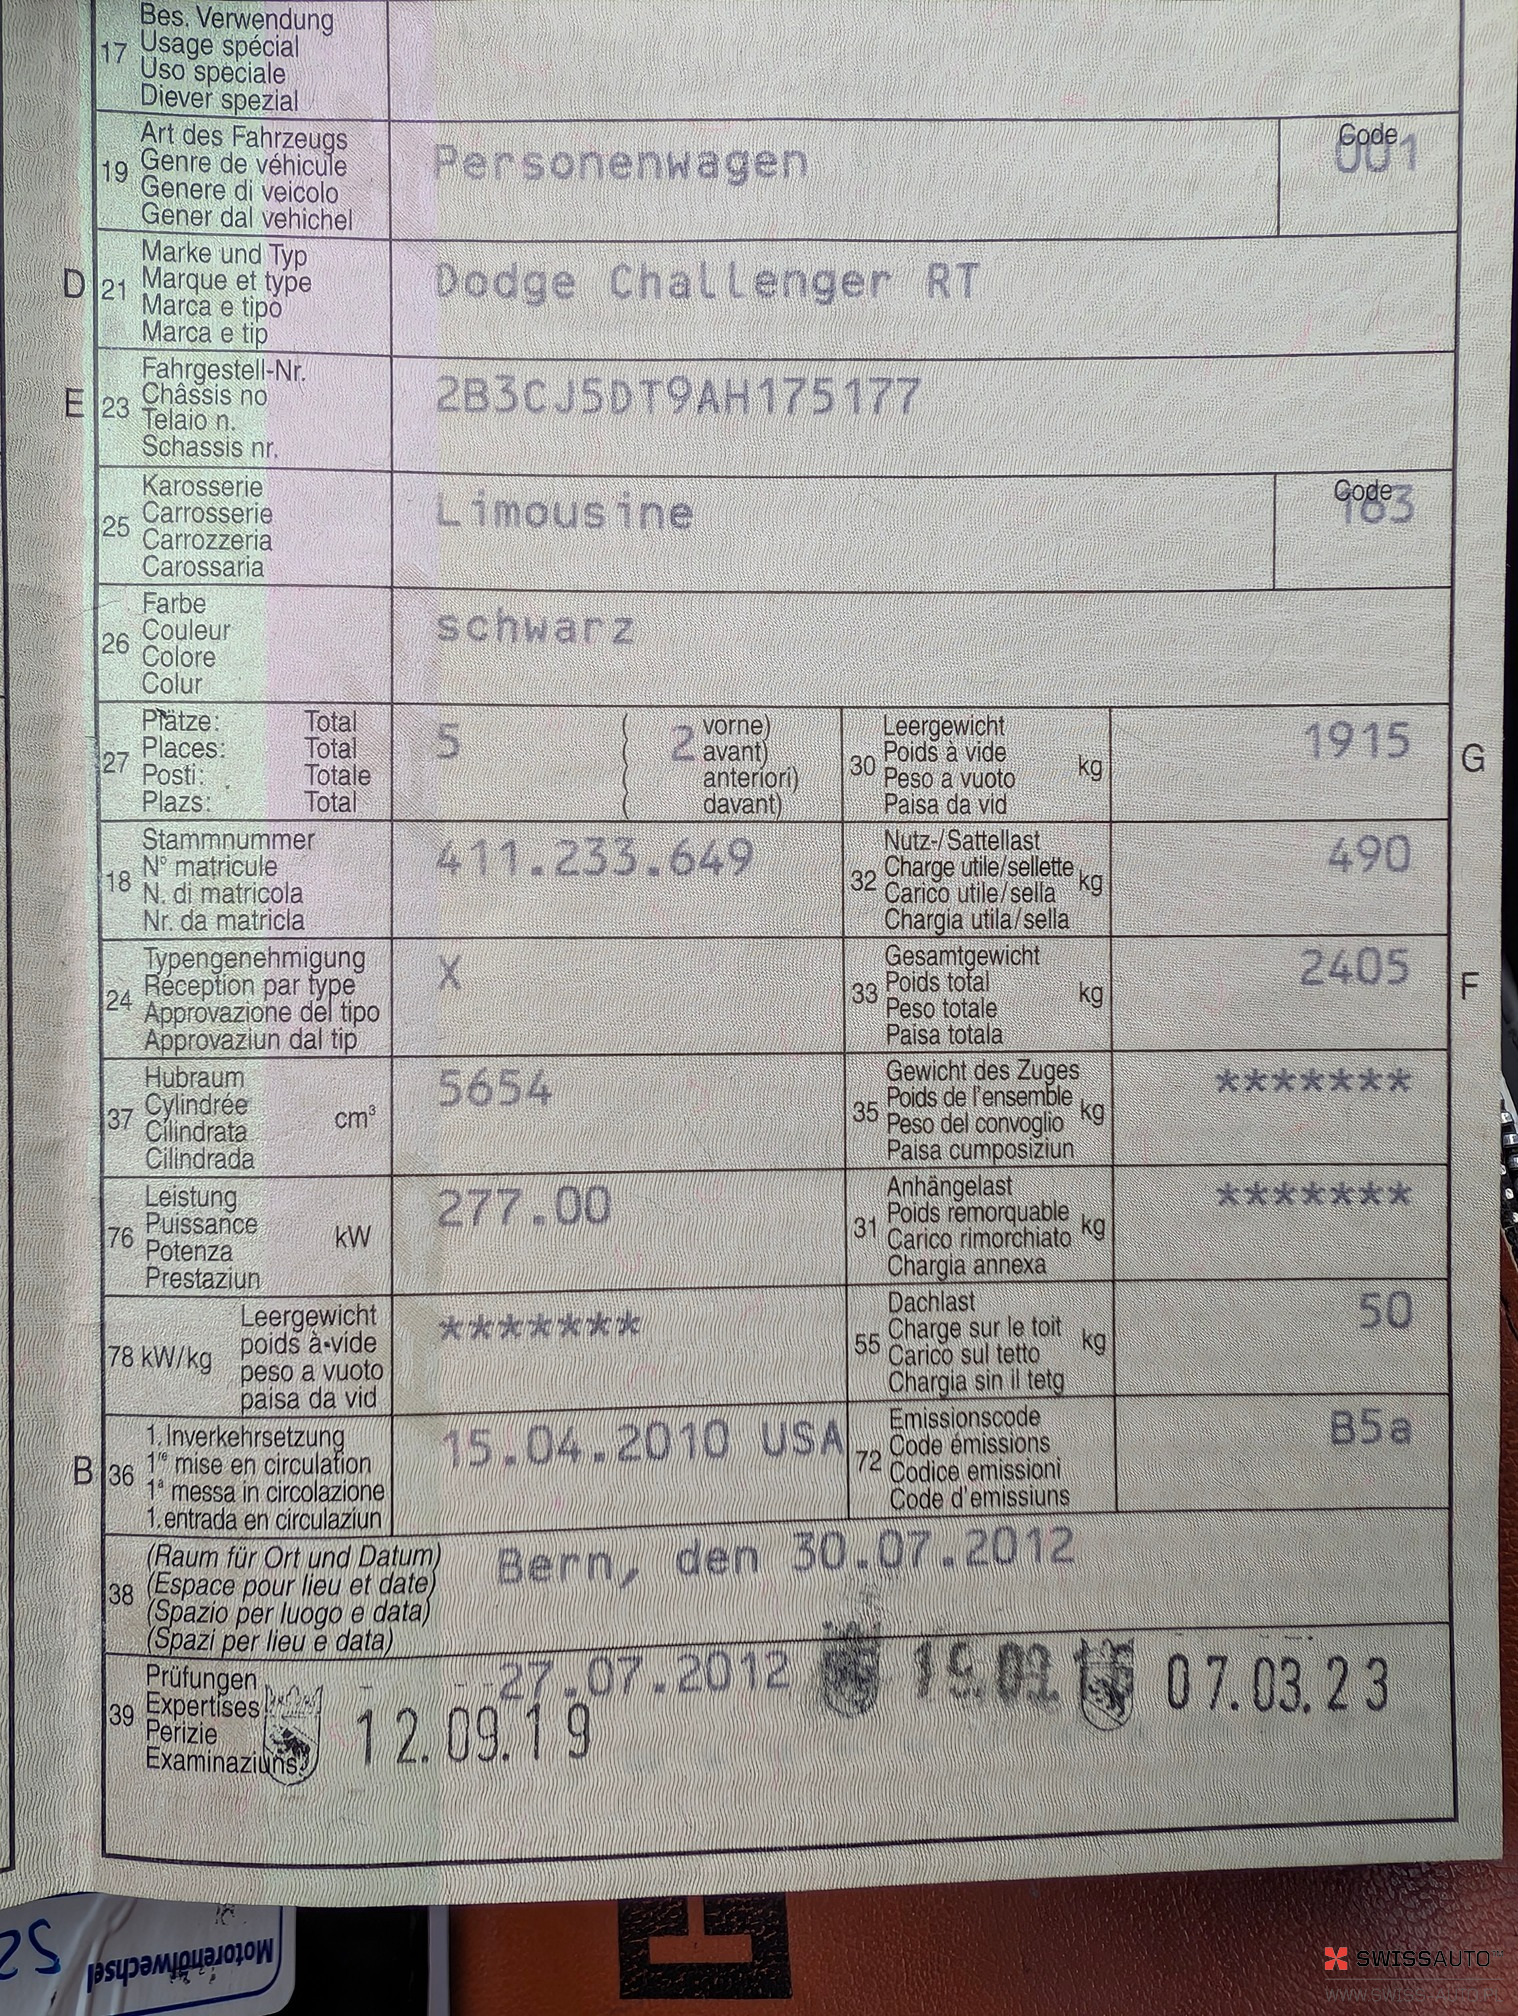 Bes. Verwendung
17 Usage spécial
Uso speciale
Diever spezial
Art des Fahrzeugs
19 Genre de véhicule
Genere di veicolo
Gener dal vehichel
Personenwagen
Code
001
D 21 Marke und Typ
Marque et type
Marca e tipo
Marca e tip
Dodge Challenger RT
E 23 Fahrgestell-Nr.
Châssis no
Telaio n.
Schassis nr.
2B3CJ5DT9AH175177
25 Karosserie
Carrosserie
Carrozzeria
Carossaria
Limousine
Code
183
26 Farbe
Couleur
Colore
Colur
schwarz
27 Plätze: Total
Places: Total
Posti: Totale
Plazs: Total
5 ( 2 vorne)
( avant)
( anteriori)
( davant)
30 Leergewicht
Poids à vide kg
Peso a vuoto
Paisa da vid
1915
G
18 Stammnummer
N° matricule
N. di matricola
Nr. da matricla
411.233.649
32 Nutz-/Sattellast
Charge utile/sellette kg
Carico utile/sella
Chargia utila/sella
490
24 Typengenehmigung
Réception par type
Approvazione del tipo
Approvaziun dal tip
X
33 Gesamtgewicht
Poids total kg
Peso totale
Paisa totala
2405
F
37 Hubraum
Cylindrée cm³
Cilindrata
Cilindrada
5654
35 Gewicht des Zuges
Poids de l'ensemble kg
Peso del convoglio
Paisa cumposiziun
*******
76 Leistung
Puissance kW
Potenza
Prestaziun
277.00
31 Anhängelast
Poids remorquable kg
Carico rimorchiato
Chargia annexa
*******
78 kW/kg Leergewicht
poids à vide
peso a vuoto
paisa da vid
*******
55 Dachlast
Charge sur le toit kg
Carico sul tetto
Chargia sin il tetg
50
B 36 1. Inverkehrsetzung
1re mise en circulation
1a messa in circolazione
1. entrada en circulaziun
15.04.2010 USA
72 Emissionscode
Code émissions
Codice emissioni
Code d'emissiuns
B5a
38 (Raum für Ort und Datum)
(Espace pour lieu et date)
(Spazio per luogo e data)
(Spazi per lieu e data)
Bern, den 30.07.2012
39 Prüfungen
Expertises
Perizie
Examinaziuns
27.07.2012
07.03.23
12.09.19
Motorenölwechsel
SWISSAUTO